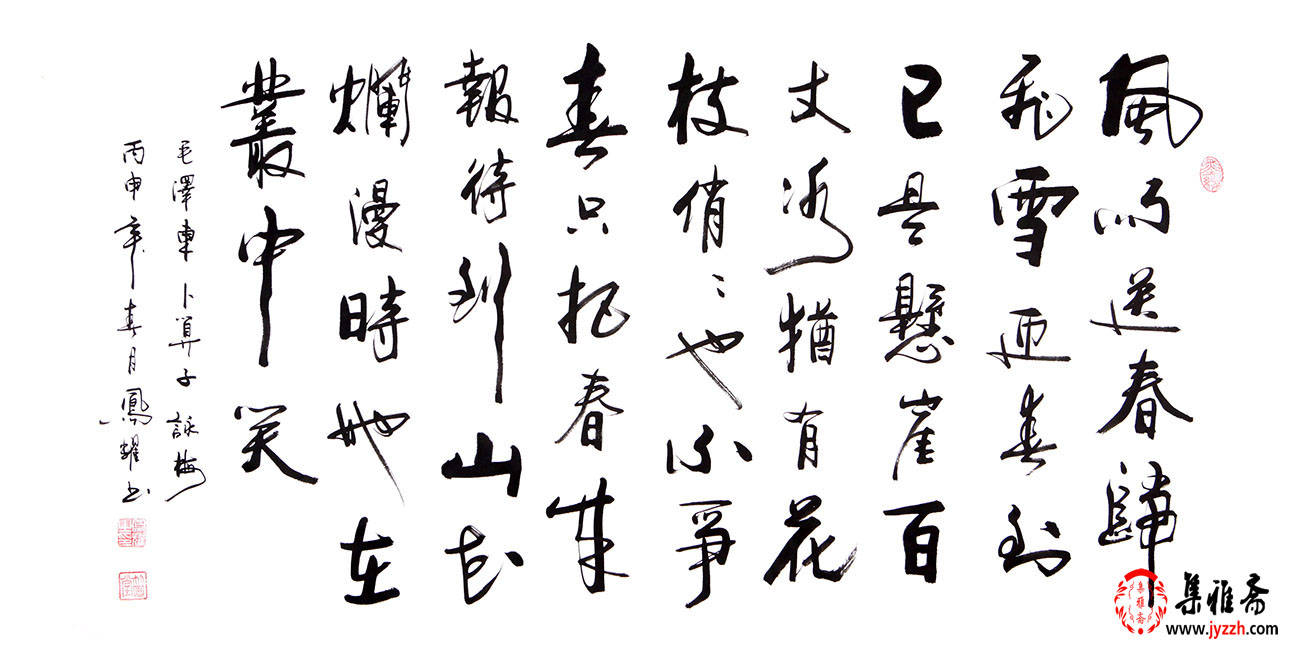 風雨送春歸
飛雪迎春到
已是懸崖百
丈冰猶有花
枝俏俏也不爭
春只把春來
報待到山花
爛漫時她在
叢中笑
毛澤東卜算子詠梅
丙申年春月鳳耀书
集雅斋
集雅斋
www.jyzzh.com